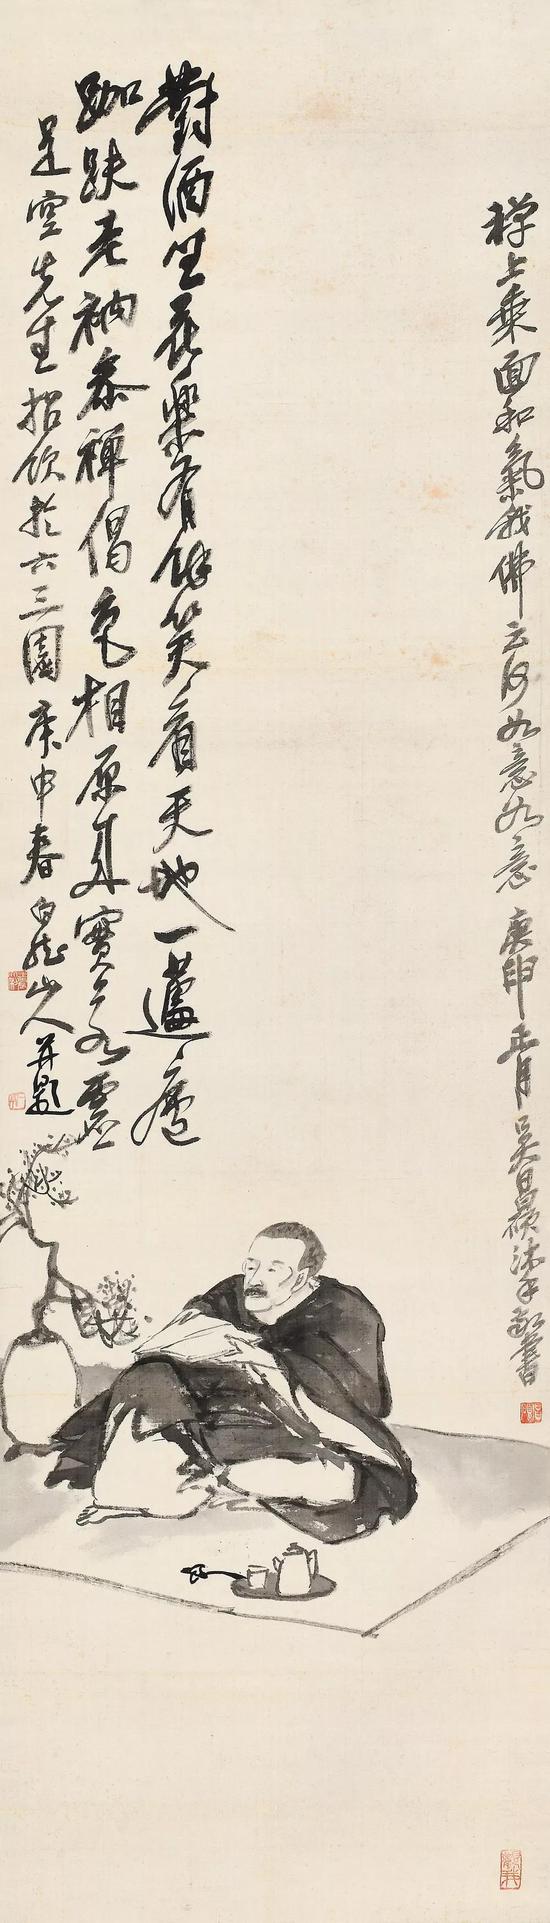 禪上乘面和氣我佛云何如意如意庚申正月吳昌碩沐手敬書
對酒坐花樂有餘笑看天地一蘧廬
跏趺老衲參禪偈色相原來實若虛
是空先生招飲於六三園庚申春白龍山人并題